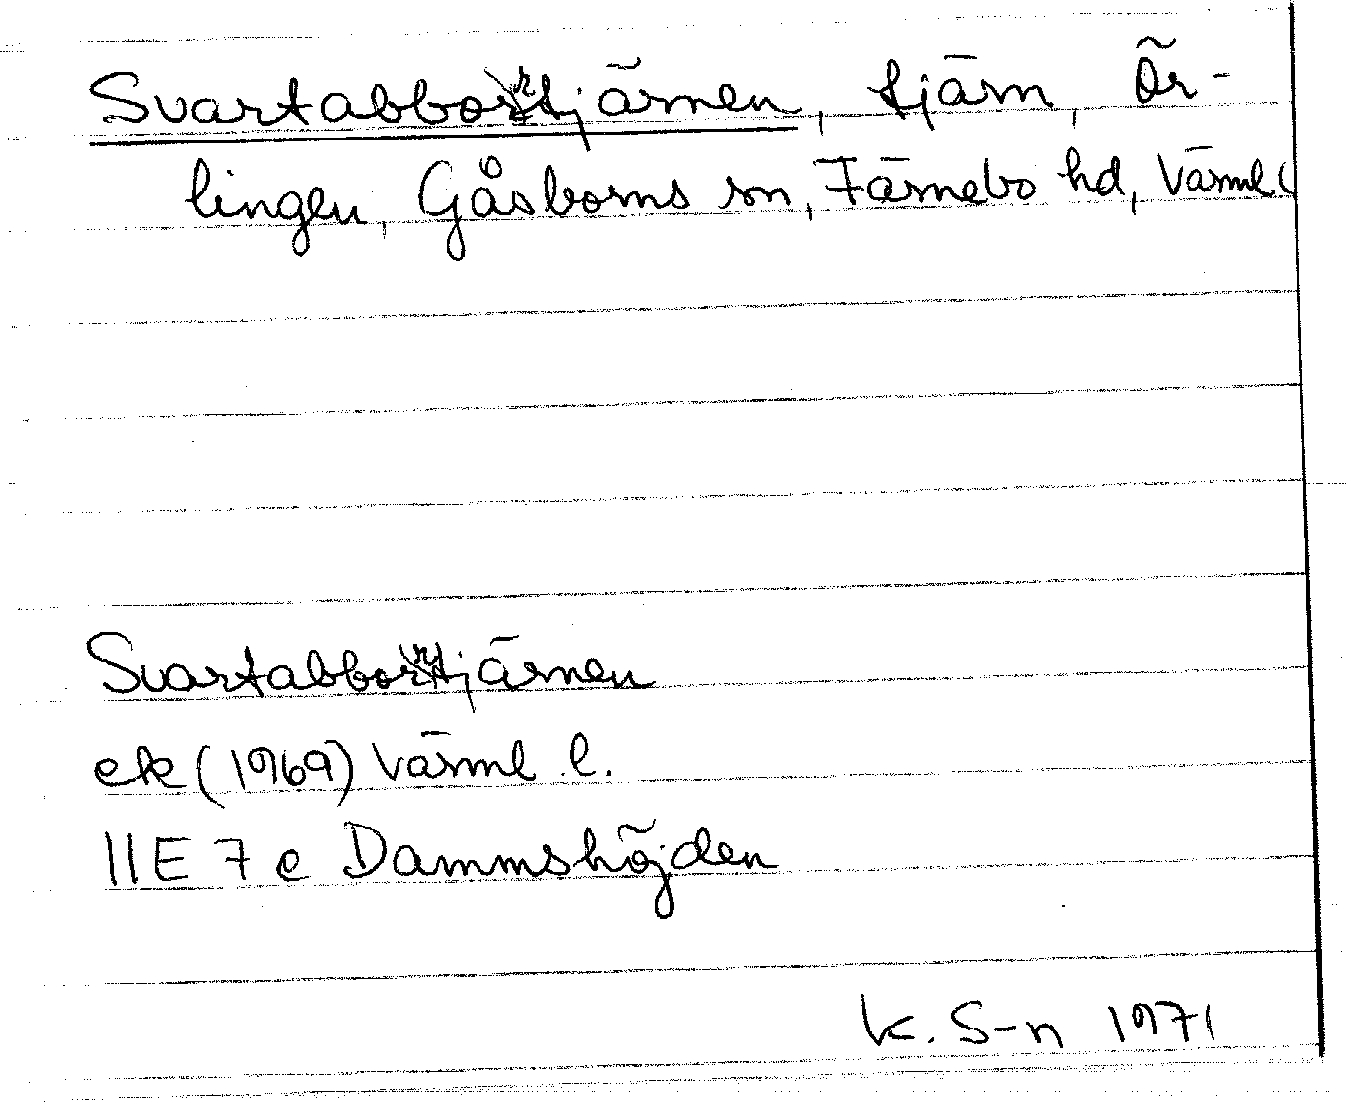 Svartabbortjärnen, tjärn, Ör-
lingen, Gåsborns sn, Färnebo hd, Värml l
Svartabbortjärnen
ek (1969) Värml l.
11E 7c Dammshöjden
K. S-n 1971